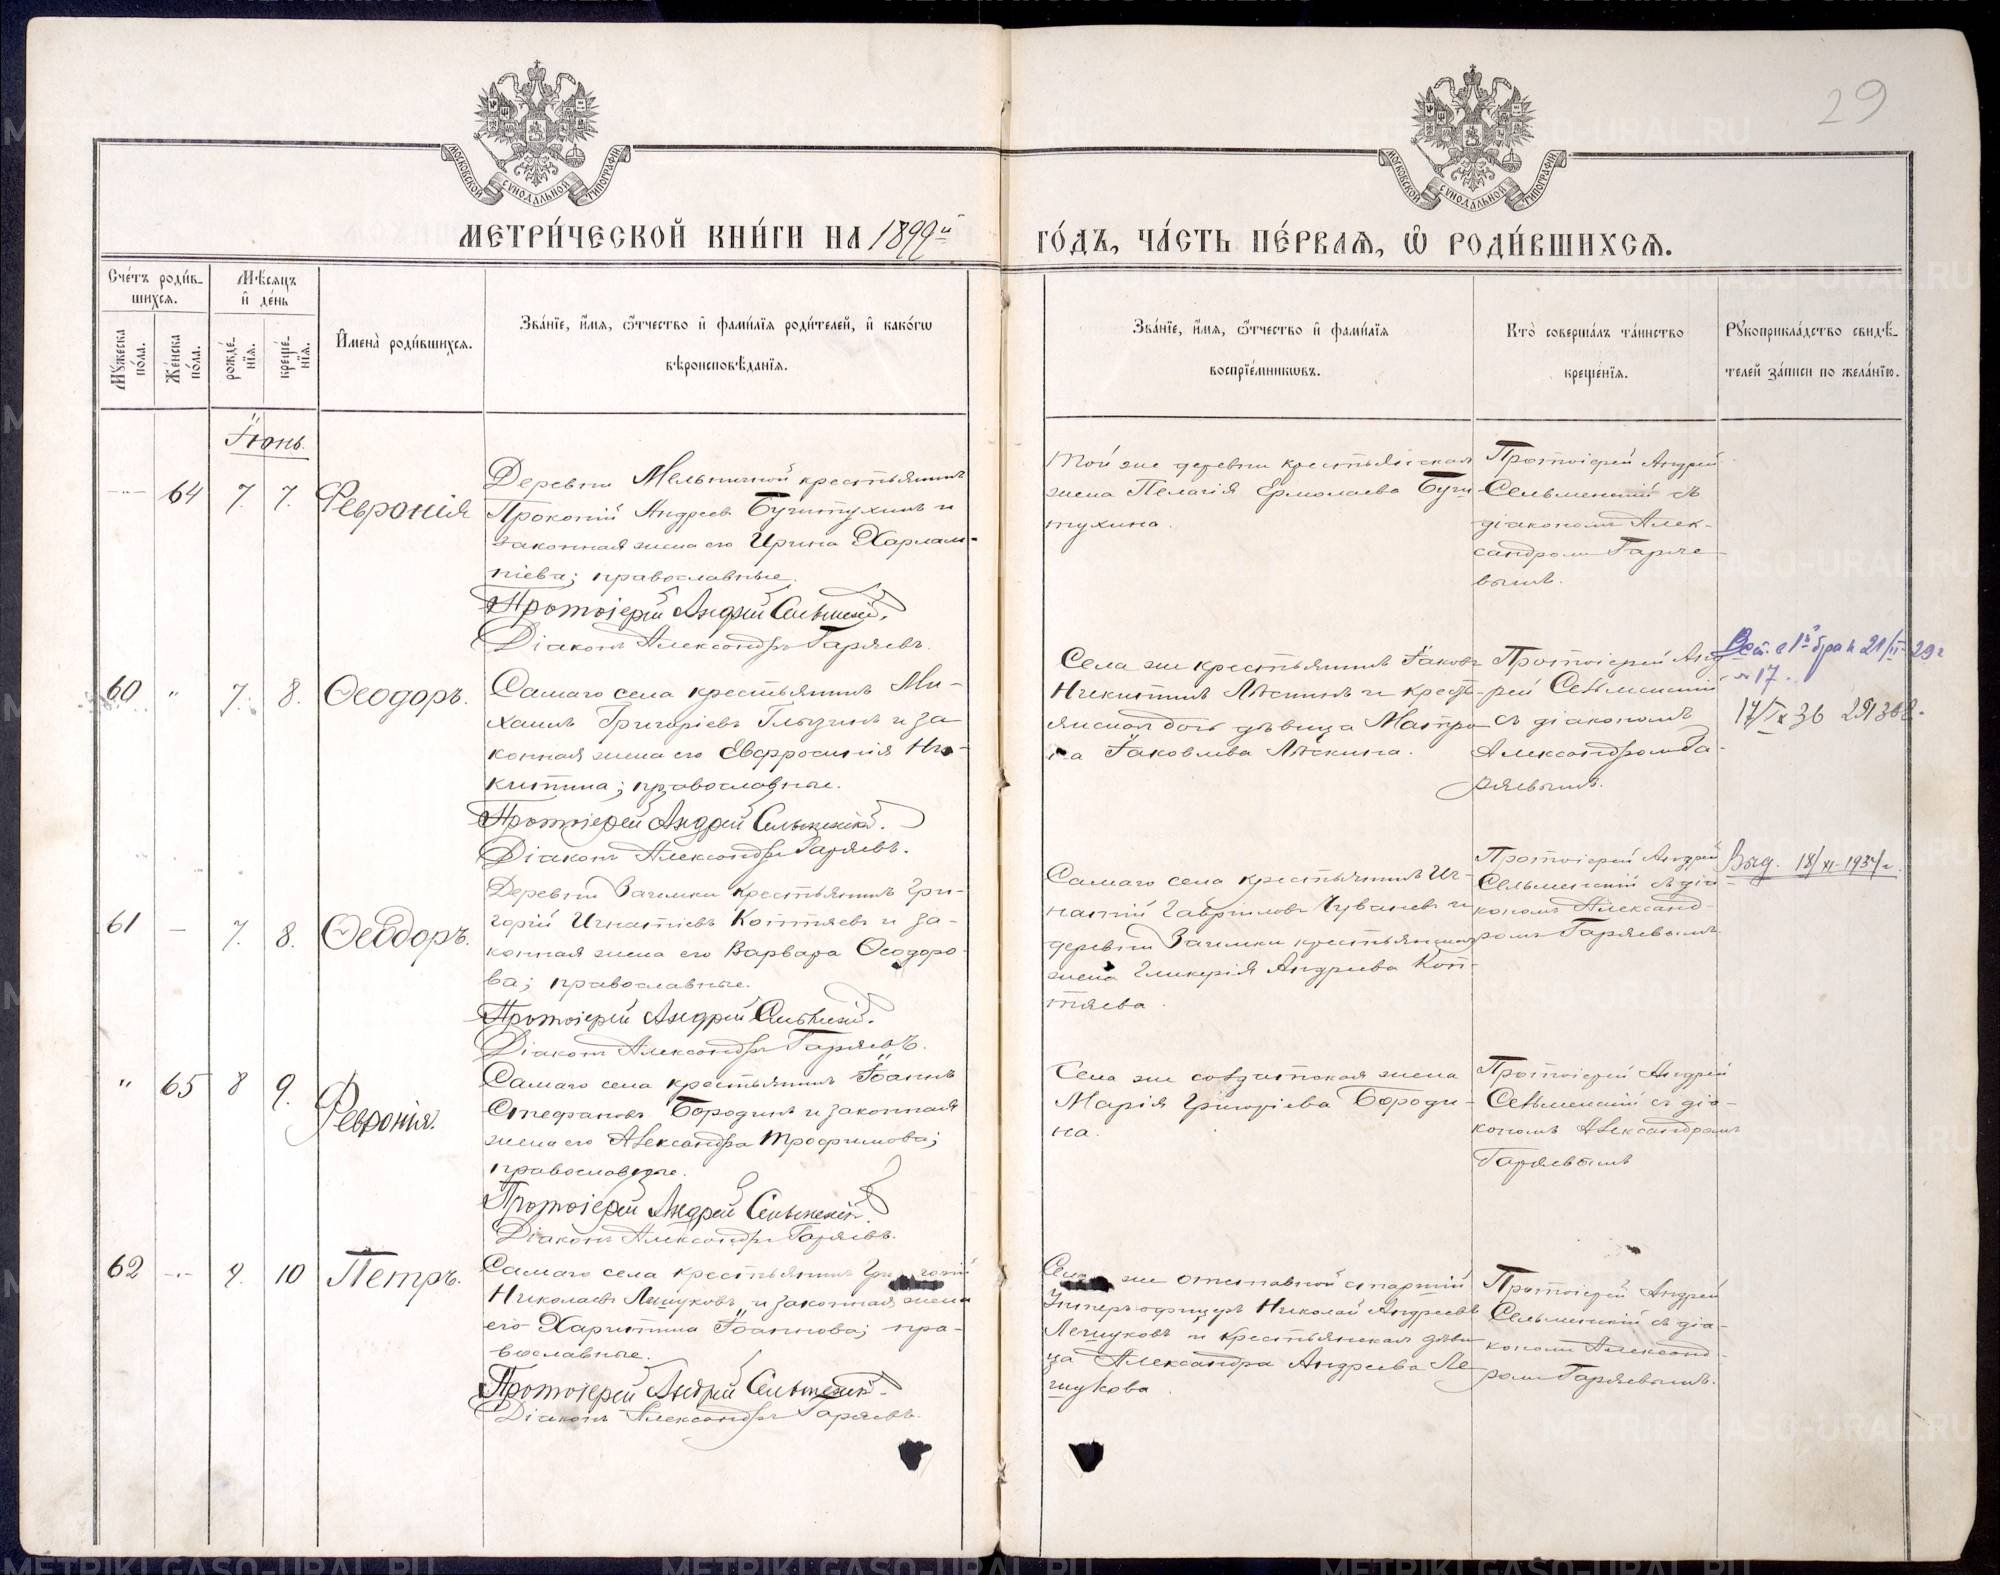 29
МОСКОВСКОЙ СѴНОДАЛЬНОЙ ТИПОГРАФІИ
МОСКОВСКОЙ СѴНОДАЛЬНОЙ ТИПОГРАФІИ
МЕТРИ́ЧЕСКОЙ КНИ́ГИ НА 1899й
ГО́ДЪ, ЧА́СТЬ ПЕ́РВАѦ, Ѡ҆ РОДИ́ВШИХСѦ.
Сче́тъ роди́в-
шихсѧ.
Мѣ́сѧцъ
и҆ де́нь
Мꙋ́жеска
по́ла.
Же́нска
по́ла.
рожде́-
нїѧ.
креще́-
нїѧ.
И҆мена̀ роди́вшихсѧ.
Зва́нїе, и҆́мѧ, ѻ҆́тчество и҆ фами́лїѧ роди́телей, и҆ како́гѡ
вѣроисповѣ́данїѧ.
Зва́нїе, и҆́мѧ, ѻ҆́тчество и҆ фами́лїѧ
воспрїе́мникѡвъ.
Кто̀ соверша́лъ та́инство
креще́нїѧ.
Рꙋкоприкла́дство свидѣ́-
телей за́писи по жела́нїю.
Іюнь.
64 7. 7. Февронія
Деревни Мельничной крестьянинъ
Прокопій Андреев Бучитухинъ и
законная жена его Ирина Харлам-
піева; православные.
Протоіерей Андрей Сельменскій.
Діаконъ Александръ Гаряевъ.
Той же деревни крестьянская
жена Пелагія Ермолаева Бучи-
тухина.
Протоіерей Андрей
Сельменскій съ
діакономъ Алек-
сандромъ Гаряе-
вымъ.
60 " 7. 8. Ѳеодоръ.
Самаго села крестьянинъ Ми-
хаилъ Григоріевъ Глызинъ и за
конная жена его Евфросинія Ни-
китина; православные.
Протоіерей Андрей Сельменскій.
Діаконъ Александръ Гаряевъ.
Села же крестьянинъ Іаковъ
Никитинъ Лѣскинъ и кресть-
янская дочь дѣвица Матро
на Іаковлева Лѣскина.
Протоіерей Анд
рей Сельменскій
съ діакономъ
Александромъ Га-
ряевымъ.
21/II 29г
№17.
17/IX 36
61 – 7. 8. Ѳеодоръ.
Деревни Заимки крестьянинъ Гри-
горій Игнатіевъ Коптяевъ и за-
конная жена его Варвара Ѳеодоро-
ва; православные.
Протоіерей Андрей Сельменскій.
Діаконъ Александръ Гаряевъ.
Самаго села крестьянинъ Иг-
натій Гавріиловъ Чуваневъ и
деревни Заимки крестьянская
жена Гликерія Андреева Коп-
тяева.
Протоіерей Андрей
Сельменскій съ діа
кономъ Александ-
ромъ Гаряевымъ
Выд. 18/XI-1937г.
" 65 8 9. Февронія.
Самаго села крестьянинъ Іоаннъ
Стефановъ Бородинъ и законная
жена его Александра Трофимова;
православные.
Протоіерей Андрей Сельменскій.
Діаконъ Александръ Гаряевъ.
Села же солдатская жена
Марія Григоріева Бороди-
на.
Протоіерей Андрей
Сельменскій съ діа-
кономъ Александромъ
Гаряевымъ
62 9. 10 Петръ.
Самаго села крестьянинъ
Николаевъ Легиуковъ и законная жена
его Харитина Іоаннова; пра-
вославные.
Протоіерей Андрей Сельменскій.
Діаконъ Александръ Гаряевъ.
же отставной старшій
Унтеръ-офицеръ Николай Андреевъ
и крестьянская дѣви
ца Александра Андреева
Протоіерей Андрей
Сельменскій съ діа-
кономъ Александ-
ромъ Гаряевымъ.
METRIKI.GASO-URAL.RU